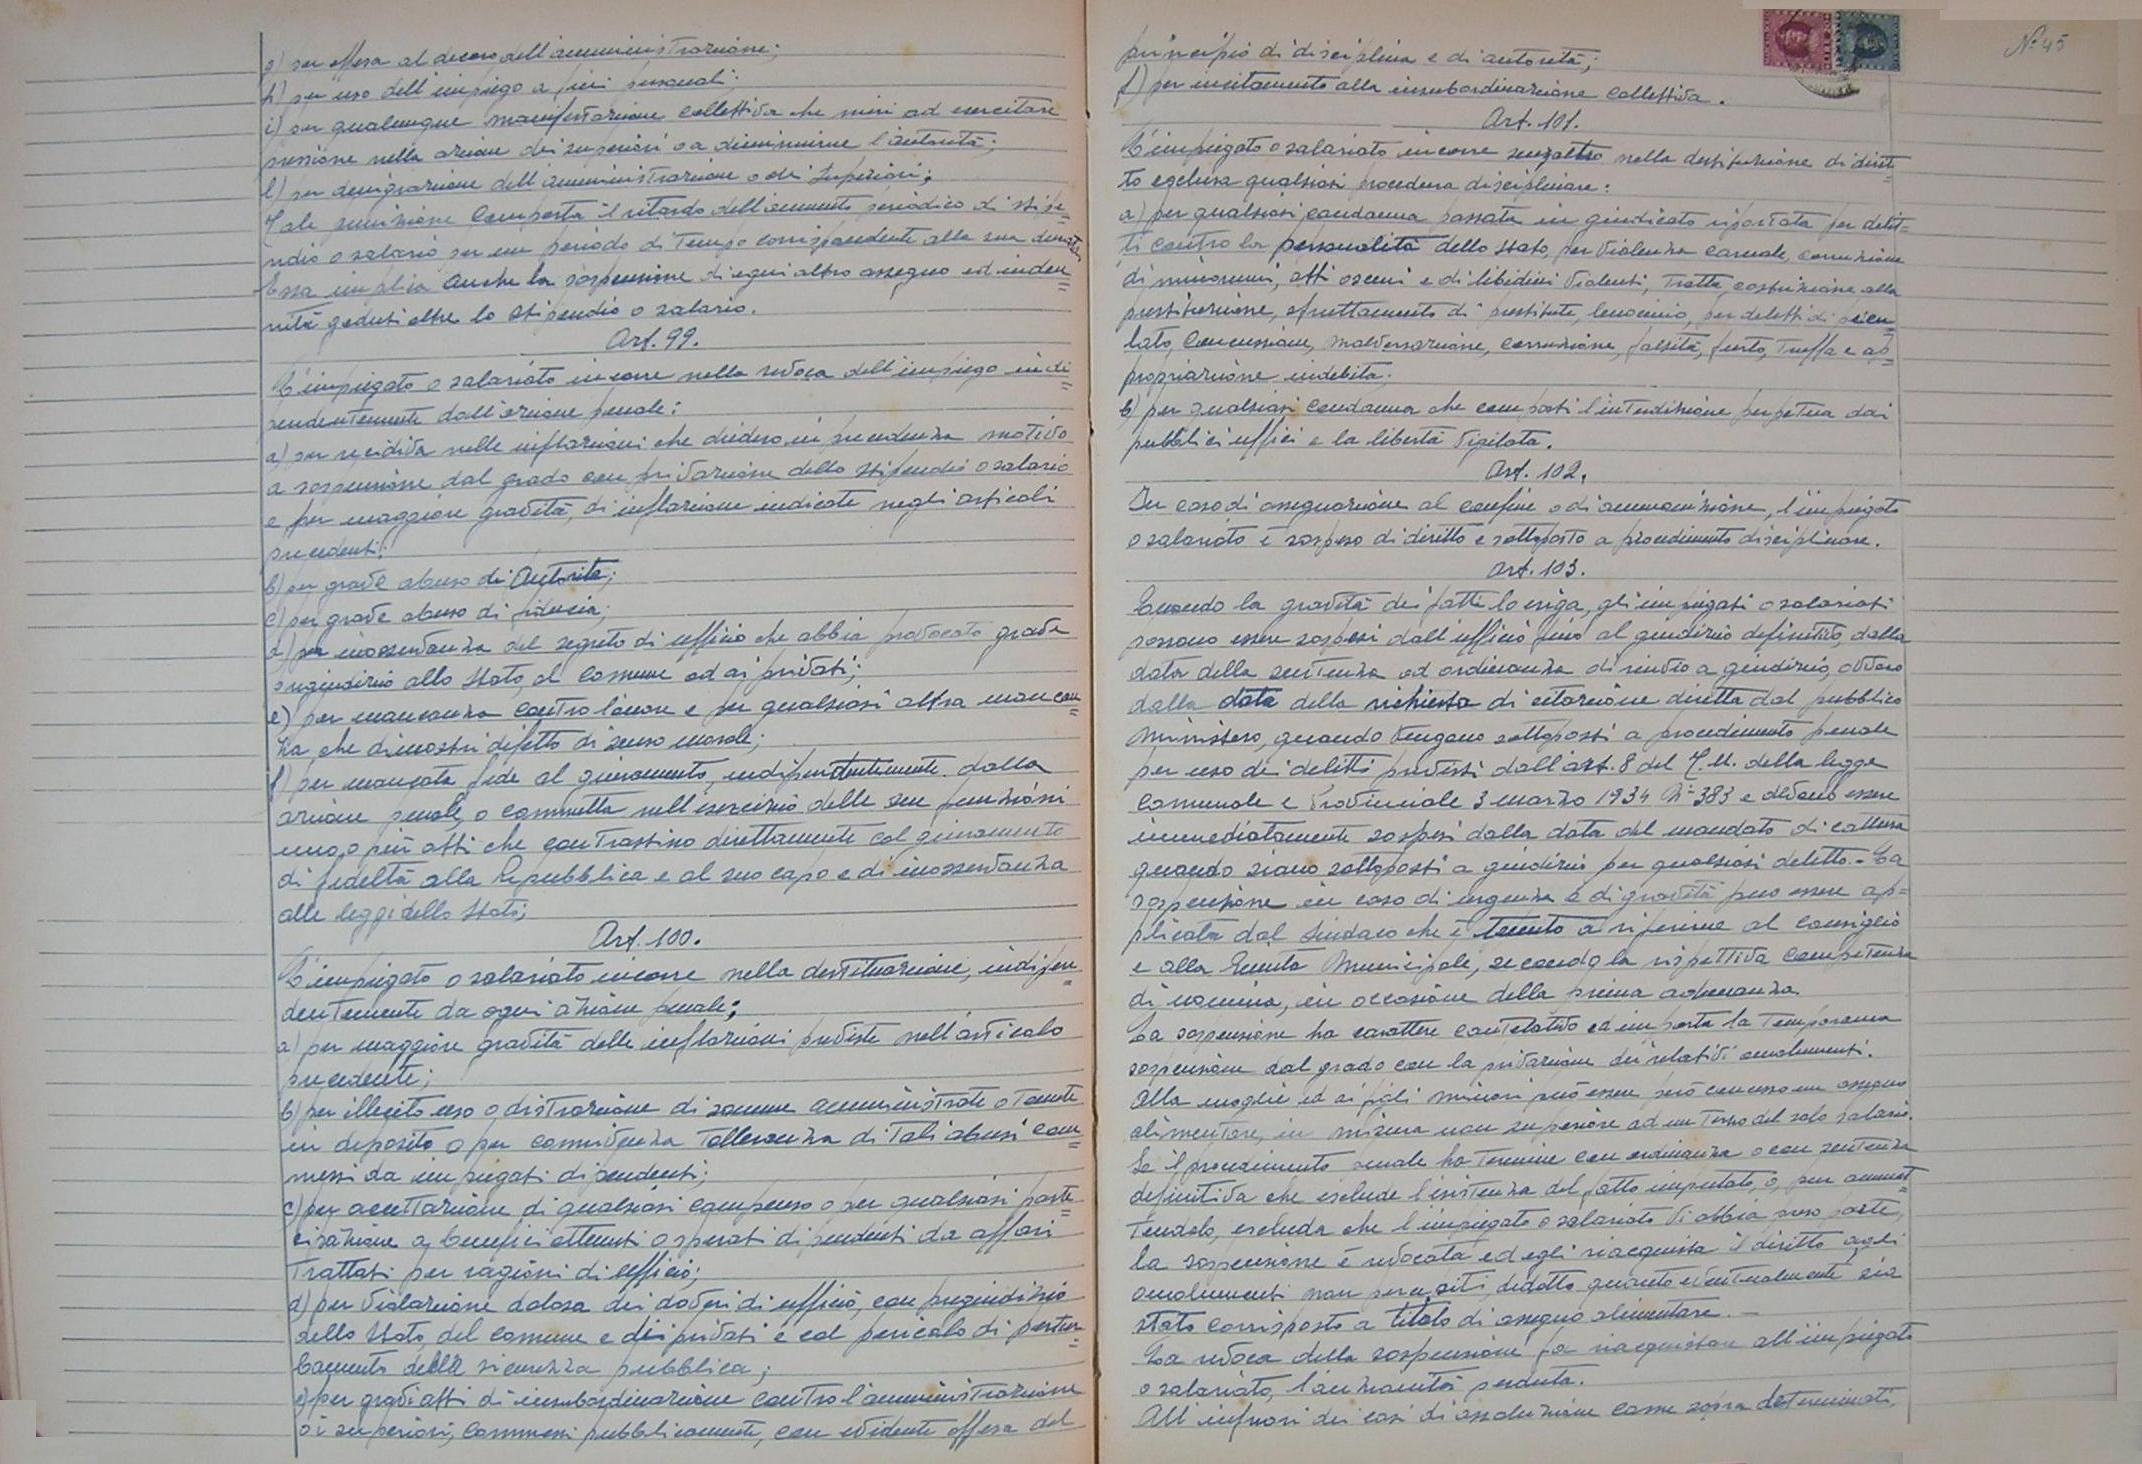 g) per offesa al decoro dell'amministrazione;
h) per uso dell'impiego a fini personali;
i) per qualunque manifestazione collettiva che miri ad esercitare
pressione nella azione dei superiori o a diminuirne l'autorità;
l) per denigrazione dell'amministrazione o dei Superiori;
Tale punizione comporta il ritardo dell'aumento periodico di stipe=
ndio o salario per un periodo di tempo corrispondente alla sua durata
Essa implica anche la sospensione di ogni altro assegno ed inden=
nità goduti oltre lo stipendio o salario.
Art. 99.
L'impiegato o salariato incorre nella revoca dell'impiego indi=
pendentemente dall'azione penale:
a) per recidiva nelle infrazioni che diedero in precedenza motivo
a sospensione dal grado con privazione dello stipendio o salario
e per maggiore gravità, di infrazione indicate negli articoli
precedenti;
b) per grave abuso di Autorità;
c) per grave abuso di fiducia;
d) per inosservanza del segreto di ufficio che abbia provocato grave
pregiudizio allo Stato, al Comune ed ai privati;
e) per mancanza contro l'onore e per qualsiasi altra mancan=
za che dimostri difetto di senso morale;
f) per mancata fede al giuramento, indipendentemente dalla
azione penale, o commetta nell'esercizio delle sue funzioni
uno, o più atti che contrastino direttamente col giuramento
di fedeltà alla Repubblica e al suo capo e di inosservanza
alle leggi dello Stato;
Art. 100.
L'impiegato o salariato incorre nella destituzione, indipen=
dentemente da ogni azione penale;
a) per maggiore gravità delle infrazioni previste nell'articolo
precedente;
b) per illecito uso o distrazione di somme amministrate o tenute
in deposito o per connivenza tolleranza di tali abusi com=
messi da impiegati dipendenti;
c) per accettazione di qualsiasi compenso o per qualsiasi parte=
cipazione a benefici ottenuti o sperati dipendenti da affari
trattati per ragioni di ufficio;
d) per violazione dolosa dei doveri di ufficio, con pregiudizio
dello Stato, del comune e dei privati e col pericolo di pertur=
bamento della sicurezza pubblica;
e) per gravi atti di insubordinazione contro l'amministrazione
o i superiori, commessi pubblicamente, con evidente offesa del
N° 45
principio di disciplina e di autorità;
f) per incitamento alla insubordinazione collettiva.
Art. 101.
L'impiegato o salariato incorre senz'altro nella destituzione di dirit=
to esclusa qualsiasi procedura disciplinare:
a) per qualsiasi condanna passata in giudicato riportata per delit=
ti contro la personalità dello Stato, per violenza carnale, corruzione
di minorenni, atti osceni e di libidini violenti, tratta, costrizione alla
prostituzione, sfruttamento di prostitute, lenocinio, per delitti di pecu=
lato, concussione, malversazione, corruzione, falsità, furto, truffa e ap=
propriazione indebita;
b) per qualsiasi condanna che comporti l'interdizione perpetua dai
pubblici uffici e la libertà vigilata.
Art. 102.
In caso di assegnazione al confine o di ammonizione, l'impiegato
o salariato è sospeso di diritto e sottoposto a procedimento disciplinare.
Art. 103.
Quando la gravità dei fatti lo esiga, gli impiegati o salariati
possono essere sospesi dall'ufficio fino al giudizio definitivo, dalla
data della sentenza od ordinanza di rinvio a giudizio, ovvero
dalla data della richiesta di citazione diretta dal pubblico
Ministero, quando vengano sottoposti a procedimento penale
per uso dei delitti previsti dall'art. 8 del T.U. della legge
Comunale e Provinciale 3 marzo 1934 N° 383 e devono essere
immediatamente sospesi dalla data del mandato di cattura
quando siano sottoposti a giudizio per qualsiasi delitto. - La
sospensione in caso di urgenza e di gravità può essere ap=
plicata dal Sindaco che è tenuto a riferirne al Consiglio
e alla Giunta Municipale, secondo la rispettiva competenza
di nomina, in occasione della prima adunanza.
La sospensione ha carattere cautelativo ed importa la temporanea
sospensione dal grado con la privazione dei relativi emolumenti.
Alla moglie ed ai figli minori può essere però concesso un assegno
alimentare, in misura non superiore ad un terzo del solo salario.
Se il procedimento penale ha termine con ordinanza o con sentenza
definitiva che esclude l'esistenza del fatto imputato, o, pur ammet=
tendolo, escluda che l'impiegato o salariato vi abbia preso parte,
la sospensione è revocata ed egli riacquista il diritto agli
emolumenti non percepiti, dedotto quanto eventualmente sia
stato corrisposto a titolo di assegno alimentare. -
La revoca della sospensione fa riacquistare all'impiegato
o salariato, l'anzianità perduta.
All'infuori dei casi di assoluzione come sopra determinati,